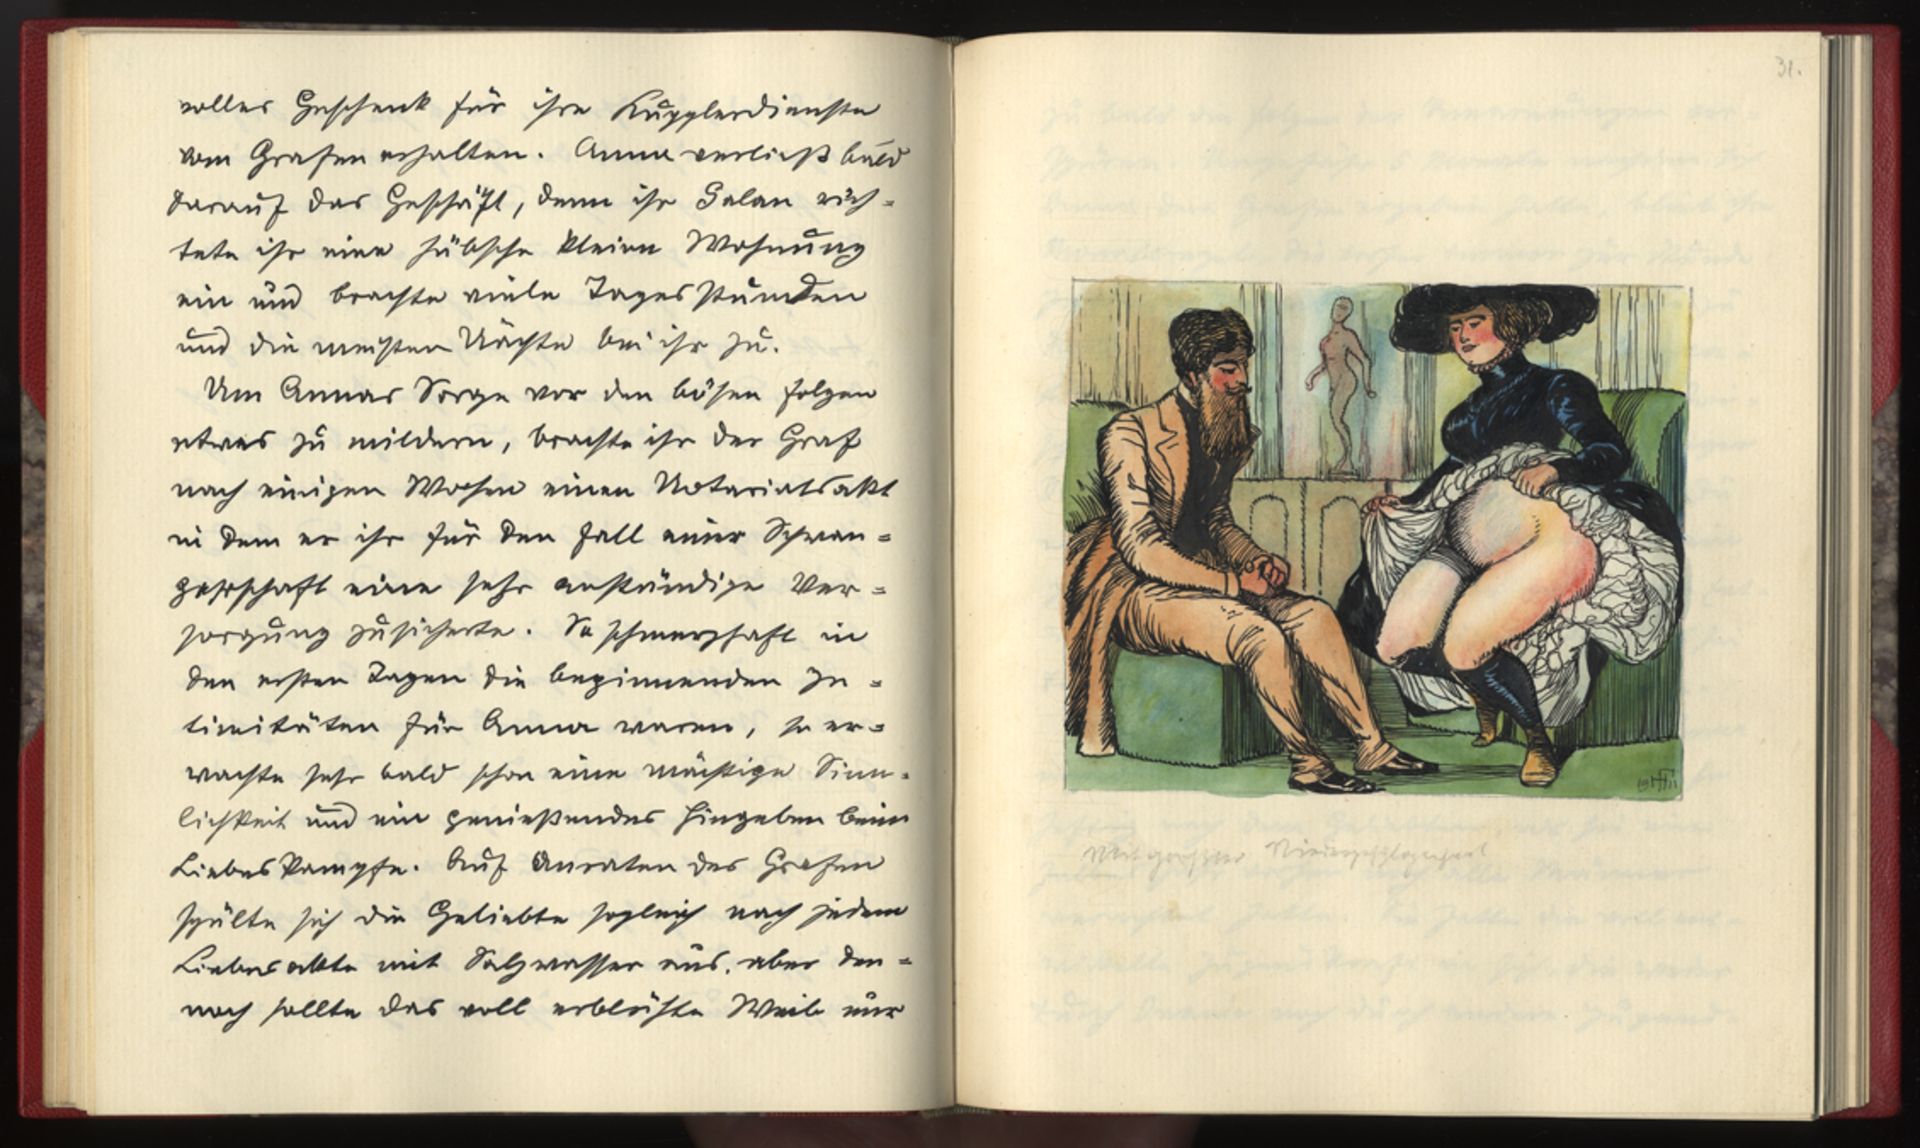 volles Geschenk für ihre Kupplerdienste
vom Grafen erhalten. Anna verließ bald
darauf das Geschäft, denn ihr Galan rich-
tete ihr eine hübsche kleine Wohnung
ein und brachte viele Tagesstunden
und die meisten Nächte bei ihr zu.
Um Annas Sorge vor den bösen Folgen
etwas zu mildern, brachte ihr der Graf
nach einigen Wochen einen Notariatsakt
in dem er ihr für den Fall einer Schwan-
gerschaft eine sehr anständige Ver-
sorgung zusicherte. So schmerzhaft in
den ersten Tagen die beginnenden In-
timitäten für Anna waren, so er-
wachte sehr bald schon eine mächtige Sinn-
lichkeit und ein genießendes Hingeben beim
Liebeskampfe. Auf Anraten des Grafen
spülte sich die Geliebte sogleich nach jedem
Liebesakte mit Salzwasser aus, aber den-
noch sollte das voll erblühte Weib nur
31.